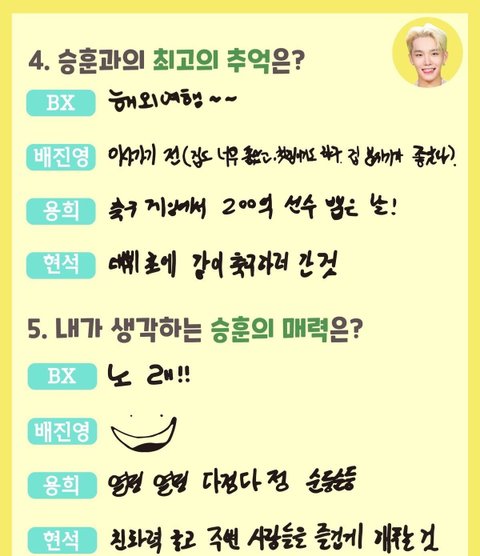 4. 승훈과의 최고의 추억은?
BX 해외여행~~
배진영 이사가기 전(집도 너무 좋았고, 분위기가 좋았다).
용희 축구 게임에서 200억 선수 뽑은 날!
현석 데뷔 초에 같이 축구하러 간 것
5. 내가 생각하는 승훈의 매력은?
BX 노래!!
배진영
용희 열정 열정 다정다정 순둥순둥
현석 친화력 좋고 주변 사람들을 즐겁게 해주는 것